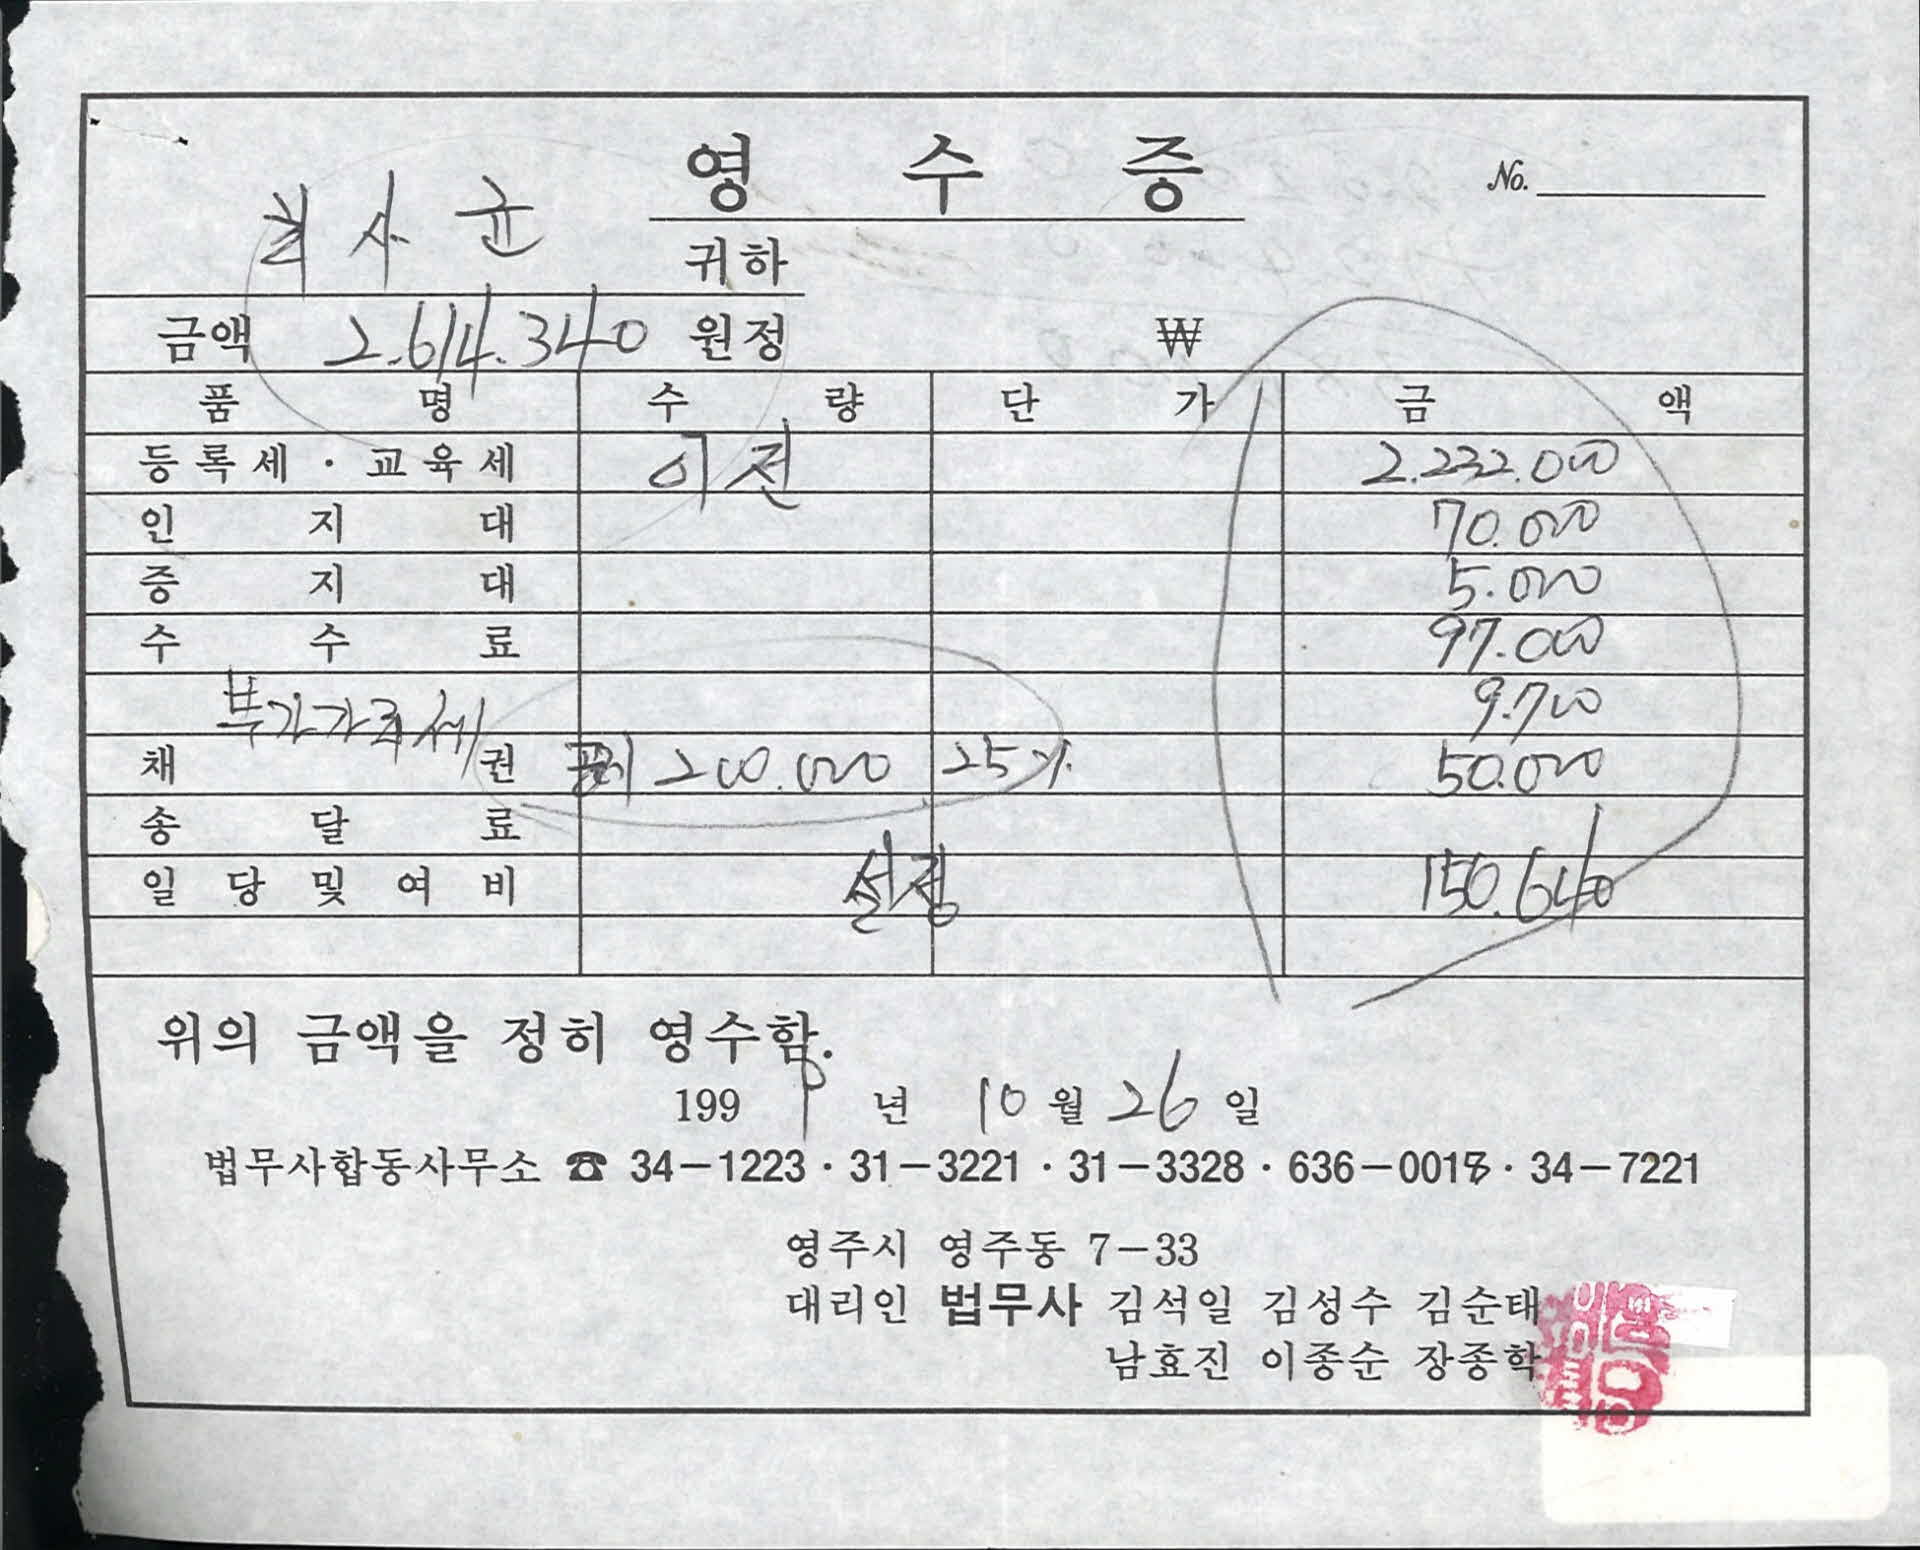 영 수 증
No.
사 균 귀하
금액 2.614.340 원정 ₩
품 명 수 량 단 가 금 액
등록세 · 교육세 이전 2.232.000
인 지 대 70.000
증 지 대 5.000
수 수 료 97.000
부가가치세 9.700
채 권 200.000 25% 50.000
송 달 료
일 당 및 여 비 설정 150.640
위의 금액을 정히 영수함.
199 년 10 월 26 일
법무사합동사무소 ☎ 34-1223 · 31-3221 · 31-3328 · 636-0018 · 34-7221
영주시 영주동 7-33
대리인 법무사 김석일 김성수 김순태
남효진 이종순 장종학